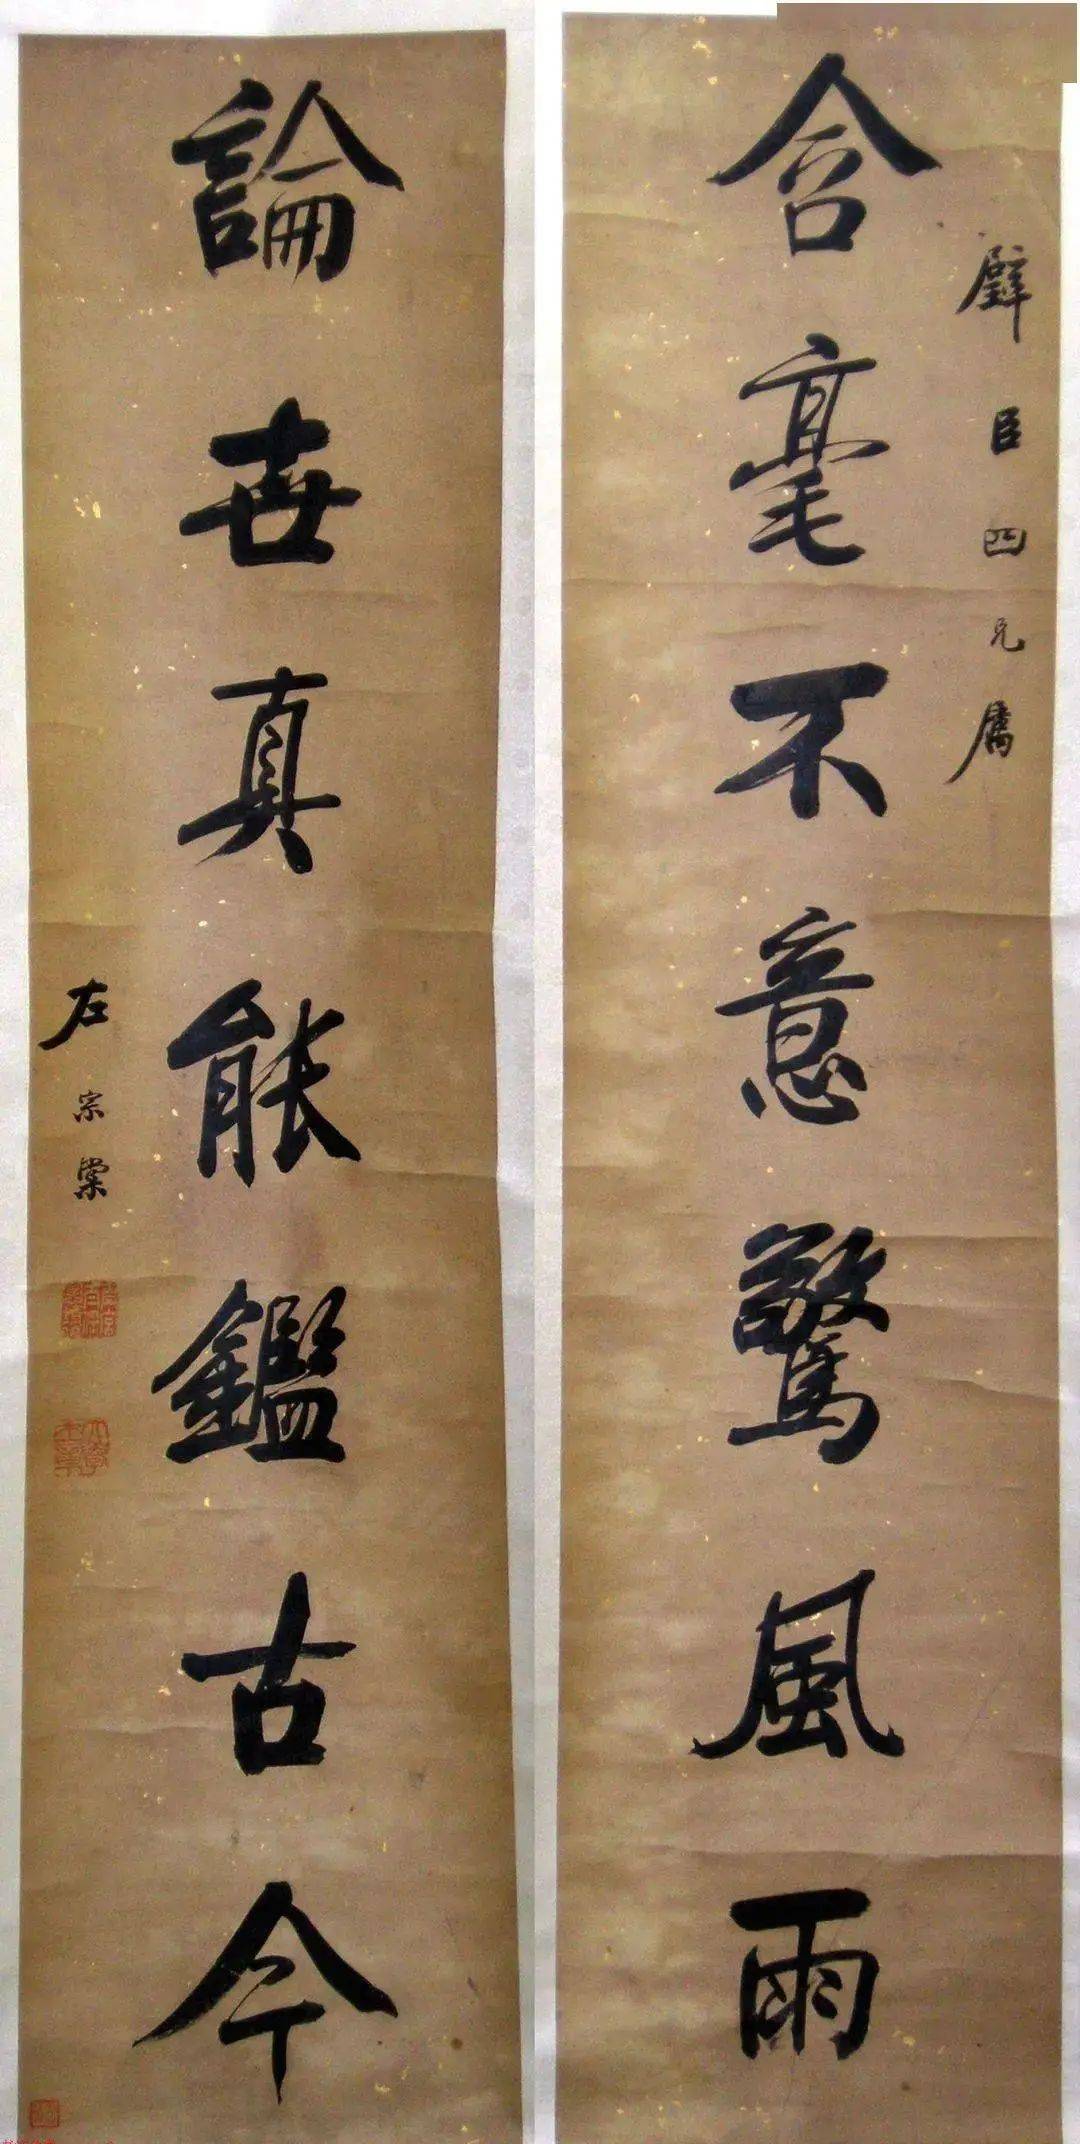 璧臣四兄属
含毫不意驚風雨
論世真能鑑古今
左宗棠